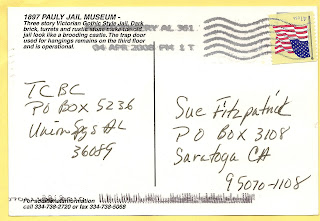 1897 PAULY JAIL MUSEUM -
Three story Victorian Gothic Jail. Dark
brick, turrets and
jail look like a brooding castle. The trap door
used for hangings remains on the third floor
and is operational.
AL 361
04 APR 2008 PM 1 T
TCBC
PO BOX 5236
Union Spgs AL
36089
Sue Fitzpatrick
P O BOX 3108
Saratoga CA
95070-1108
For additional information
call 334-738-2720 or fax 334-738-5068